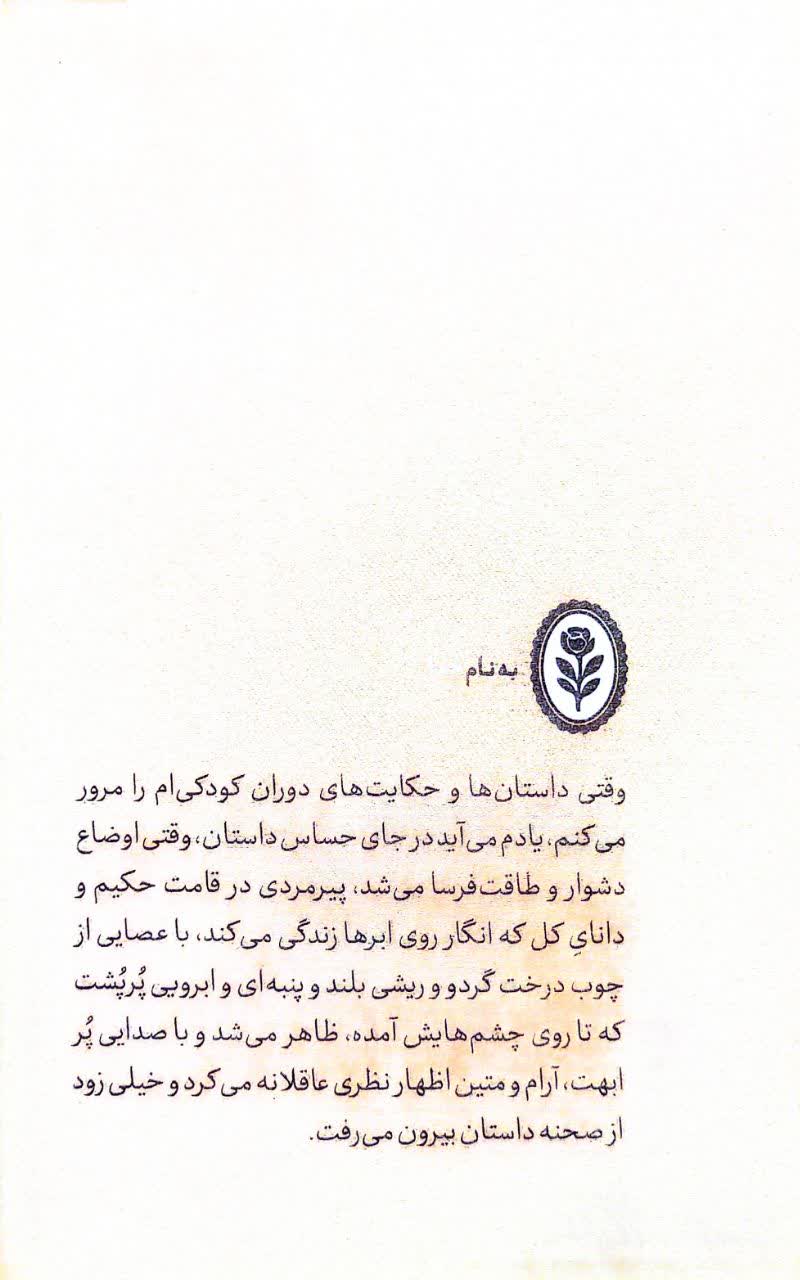 به‌نام
وقتی داستان‌ها و حکایت‌های دوران کودکی‌ام را مرور
می‌کنم، یادم می‌آید در جای حساس داستان، وقتی اوضاع
دشوار و طاقت‌فرسا می‌شد، پیرمردی در قامت حکیم و
دانایِ کل که انگار روی ابرها زندگی می‌کند، با عصایی از
چوب درخت گردو و ریشی بلند و پنبه‌ای و ابرویی پُرپُشت
که تا روی چشم‌هایش آمده، ظاهر می‌شد و با صدایی پُر
ابهت، آرام و متین اظهار نظری عاقلانه می‌کرد و خیلی زود
از صحنه داستان بیرون می‌رفت.